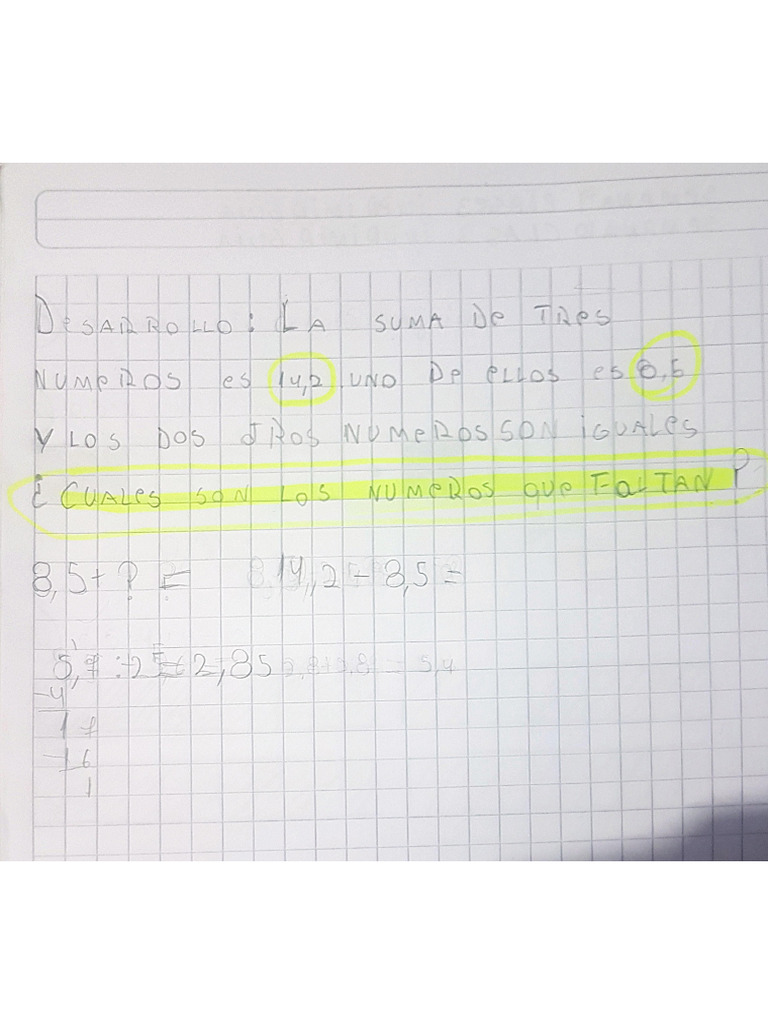 DeSARROLLO: LA SUMA De TRes
NUMeROS es 14,2 UNO De eLLOS es 8,5
Y LOS DOS OTROS NUMeROS SON iGUALes
¿ CUALes SON LOS NUMeROS QUe FALTAN?
8,5 + ? = 14,2 - 8,5 =
5,7 : 2 = 2,85
-4
17
-16
1